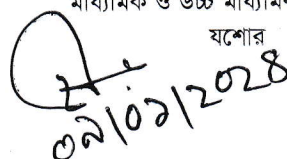 মাধ্যমিক ও উচ্চ মাধ্যমিক
যশোর
০৯|০১|২০২৪